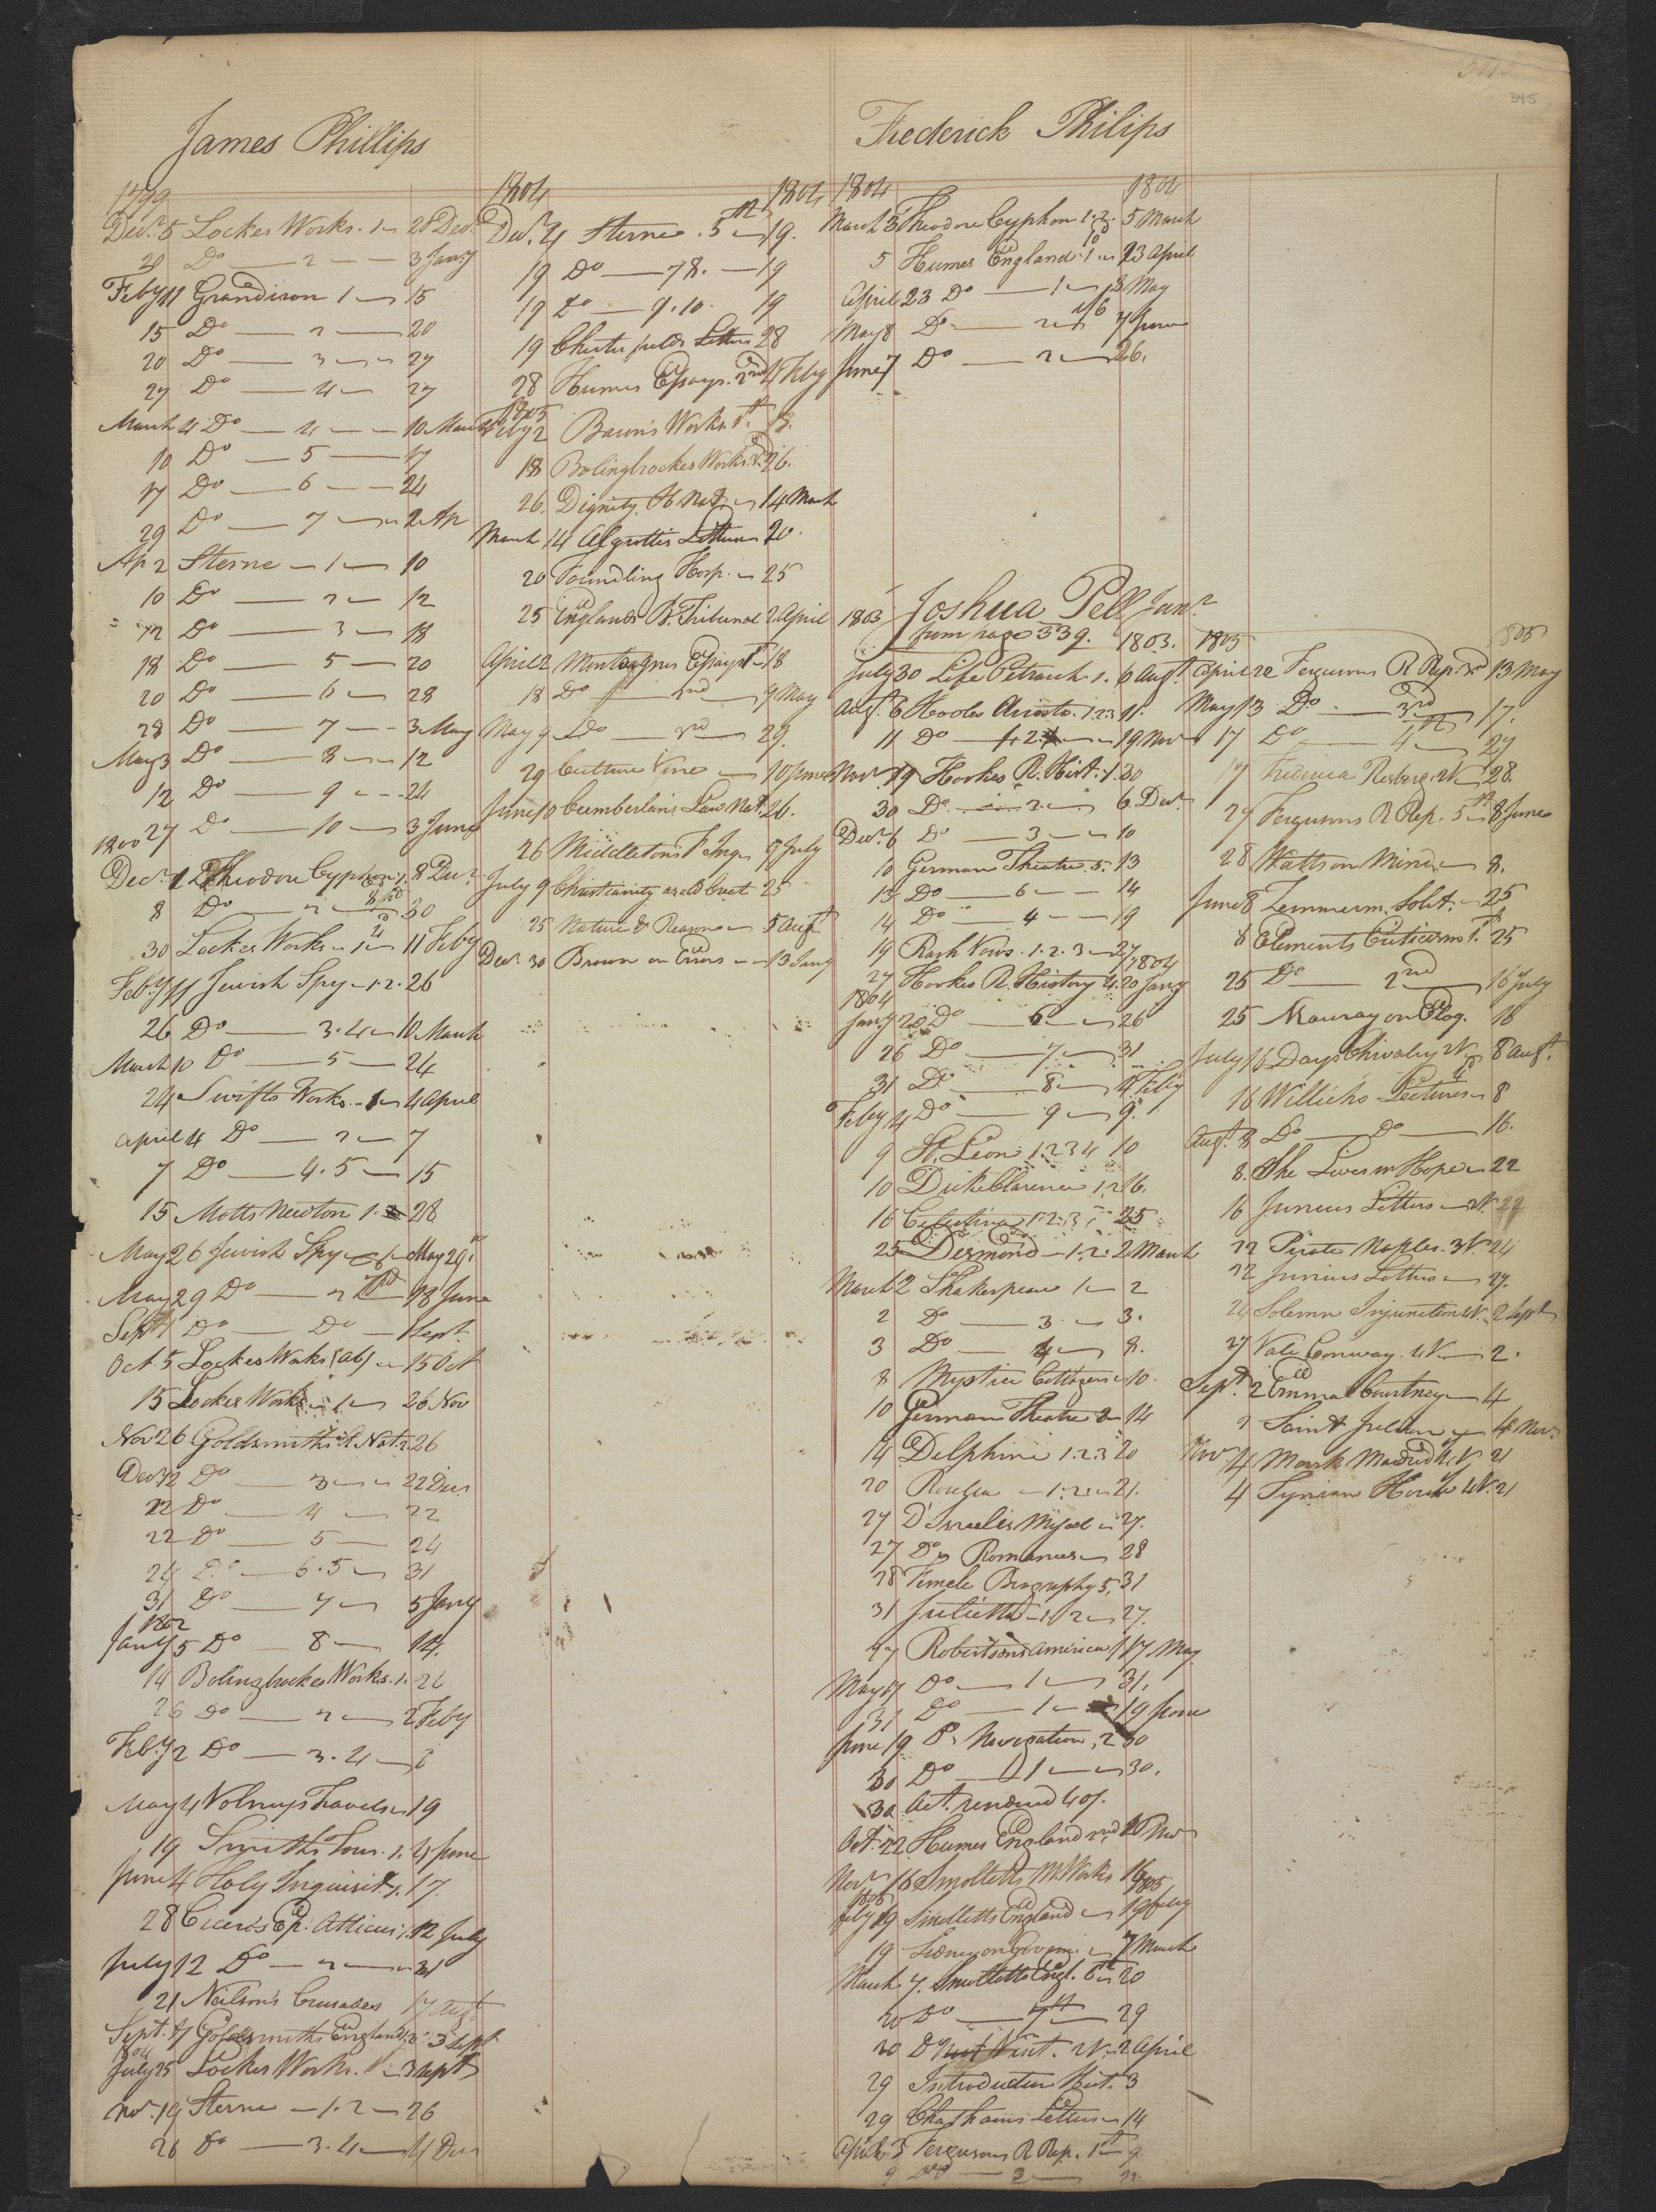 345
James Phillips
1799
Decr. 5 Lockes Works. 1 28 Decr
28 Do 2 3 Jany
Feby 11 Grandison 1 15
15 Do 2 20
20 Do 3 27
27 Do 4 27
March 4 Do 4 10 March
10 Do 5 17
17 Do 6 24
29 Do 7 2 Ap
Ap 2 Sterne 1 10
10 Do 2 12
12 Do 3 18
18 Do 5 20
20 Do 6 28
28 Do 7 3 May
May 3 Do 8 12
12 Do 9 24
27 Do 10 3 June
1800
Decr. 1 Theodore Cyphon 1. 8 Decr.
8 Do 2 30
30 Lockes Works 1 11 Feby
Feby 11 Jewish Spy 1.2. 26
26 Do 3.4 10 March
March 10 Do 5 24
24 Swifts Works 1 4 April
April 4 Do 2 7
7 Do 4.5 15
15 Motts Newton 1. 28
May 26 Jewish Spy 1 May 29.
May 29 Do 2 18 June
Sept 1 Do Do Sept.
Oct. 5 Lockes Works (ab) 15 Oct
15 Lockes Works 1 26 Nov
Nov 26 Goldsmiths A Nat. 2 26
Decr 2 Do 3 22 Decr
22 Do 4 22
22 Do 5 24
24 Do 6.5 31
31 Do 7 5 Jany
1802
Jany 5 Do 8 14.
14 Bolingbrokes Works. 1. 26
26 Do 2 2 Feby
Feby 2 Do 3.4
May 4 Volneys Travels 19
19 Smiths Tour. 1. 4 June
June 4 Holy Inquisit. 17.
28 Ciceros Ep. Atticus 1. 12 July
July 12 Do 2 21
21 Neilson's Crusades 17 Augt
Sept. 17 Goldsmiths England. 3 Sept
July 25 Lockes Works. 1 3 Sept
Nov. 19 Sterne 1.2 26
26 Do 3.4 4 Decr
1804 1804
Decr. 4 Sterne. 5 19.
19 Do 7 8. 19
19 Do 9.10. 19
19 Chesterfields Letters 28
28 Humes Essays. 2nd 4 Feby
1805
Feby 2 Bacon's Works. 1st. 18.
18 Bolingbrokes Works. 26.
26. Dignity H Nat. 14 March
March 14 Algrottis Letters 20.
20 Foundling Hosp. 25
25 Englands B. Tribunal 2 April
April 2 Montagnes Essays 1st 18
18 Do 2nd 9 May
May 9 Do 3rd 29.
29 Culture Vine 10 June
June 10 Cumberlain Law Nat. 26.
26 Middletons F Inq 9 July
July 9 Christianity as old Creat 25
25 Nature & Reason 5 Augt
Decr. 30 Brown on Errors 13 Jany
Frederick Philips
1804 1804
March 3 Theodore Cyphon 1.2. 5 March
5 Humes England 1 23 April
April 23 Do 1 8 May
May 8 Do 2 7 June
June 7 Do 2 26.
Joshua Pell Junr
1803 from page 339. 1803.
July 30 Life Petrarch 1. 6 Augt.
Augt. 6 Hooles Ariosto. 1.2.3 11.
11 Do 19 Nov
Nov. 19 Hookes R. Hist. 1. 30
30 Do 2. 6 Decr
Decr. 6 Do 3 10
10 German Theatre. 5. 13
13 Do 6 14
14 Do 4 19
19 Rash Vows. 1.2.3 27
27 Hookes R. History 4. 20 Jany 1804
1804
Jany 20 Do 6 26
26 Do 7 31
31 Do 8 4 Feby
Feby 4 Do 9 9.
9 St. Leon 1.2.3.4 10
10 Duke Clarence 1.2 16.
16 Celestina 1.2.3. 25
25 Desmond 1.2. 2 March
March 2 Shakespeare 1 2
2 Do 3 3.
3 Do 4 8.
8 Mystic Cottager 10.
10 German Theatre 2 14
14 Delphine 1.2.3 20
20 Rouzea 1.2 21.
27 D'Israelis Miscel 27.
27 Do Romances 28
28 Female Biography 5. 31
31 Julietta 1.2 27.
27 Robertsons America 1 17 May
May 17 Do 1 31.
31 Do 1 19 June
June 19 Ps Navigation. 2 30
30 Do 1 30.
30 Act. renewed 407.
Oct. 22 Humes England 2nd 16 Nov
Novr. 16 Smolletts M. Works 19
1805 1805
Feby 19 Smolletts England 19 Feby
19 Sidney on Govern. 7 March
March 7. Smolletts Engl. 6th 20
20 Do 7th 29
20 Do 2V. 2 April
29 Introduction Hist. 3
29 Chathams Letters 14
April 3 Fergusons R Rep. 1st 9
9 Do 2 22
1805 1805
April 22 Fergusons R Rep. 3rd 13 May
May 13 Do 3rd 17.
17 Do 4th 27
17 Fredrica Risberg. 2V. 28.
27 Fergusons R Rep. 5th 8 June
28 Watts on Mind 8.
June 8 Zimmerm. Solit. 25
8 Elements Criticism 1st. 25
25 Do 2nd 16 July
25 Maury on Eloq. 16
July 16 Days Chivalry 2V 8 Augt.
16 Willich's Lectures 8
Augt. 8 Do Do 16.
8. She Lives in Hope 22
16 Junius Letters 2V. 22
22 Pirate Naples. 3V. 24
22 Junius Letters 27.
24 Solemn Injunction 4V. 2 Sept
27 Vale Conway. 4V 2.
Sept. 2 Emma Courtney 4
2 Saint Julian 4 Nov.
Nov. 4 Monk Madrid 4V. 21
4 Tynian House 4V. 21